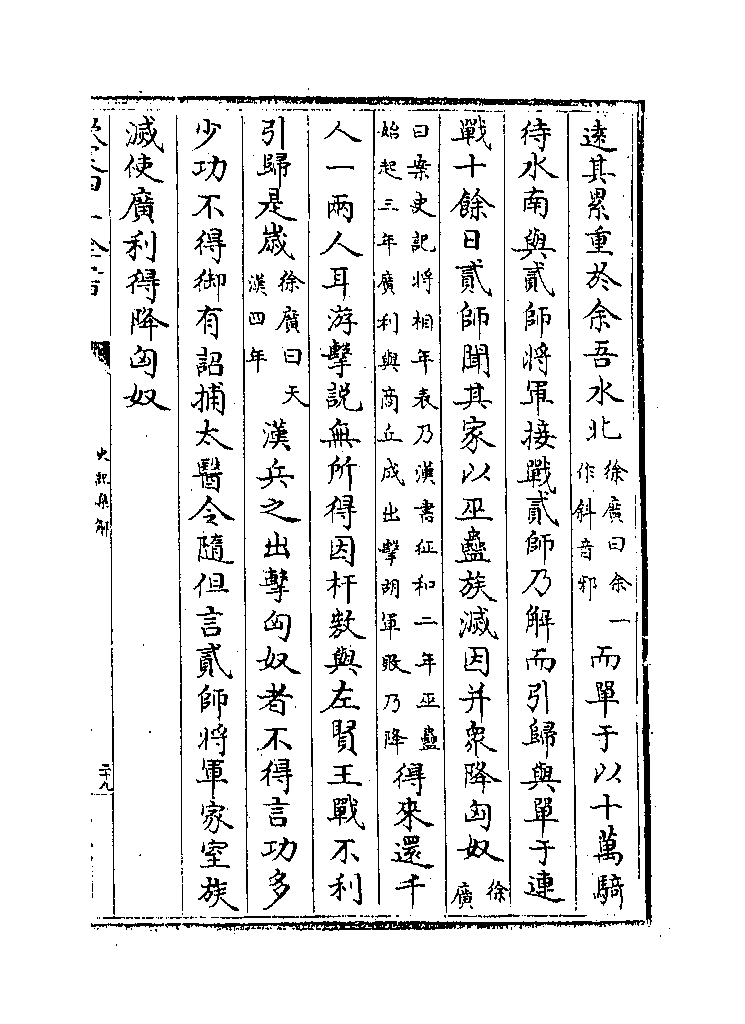 逺其累重於余吾水北徐廣曰余一作斜音邪而單于以十萬騎
待水南與貳師將軍接戰貳師乃解而引歸與單于連
戰十餘日貳師聞其家以巫蠱族滅因并衆降匈奴徐廣
曰案史記將相年表乃漢書征和二年巫蠱始起三年廣利與商丘成出擊胡軍敗乃降得來還千
人一兩人耳游擊説無所得因杆敖與左賢王戰不利
引歸是歲徐廣曰天漢四年漢兵之出擊匈奴者不得言功多
少功不得御有詔捕太醫令隨但言貳師將軍家室族
滅使廣利得降匈奴
史記集解
二十九